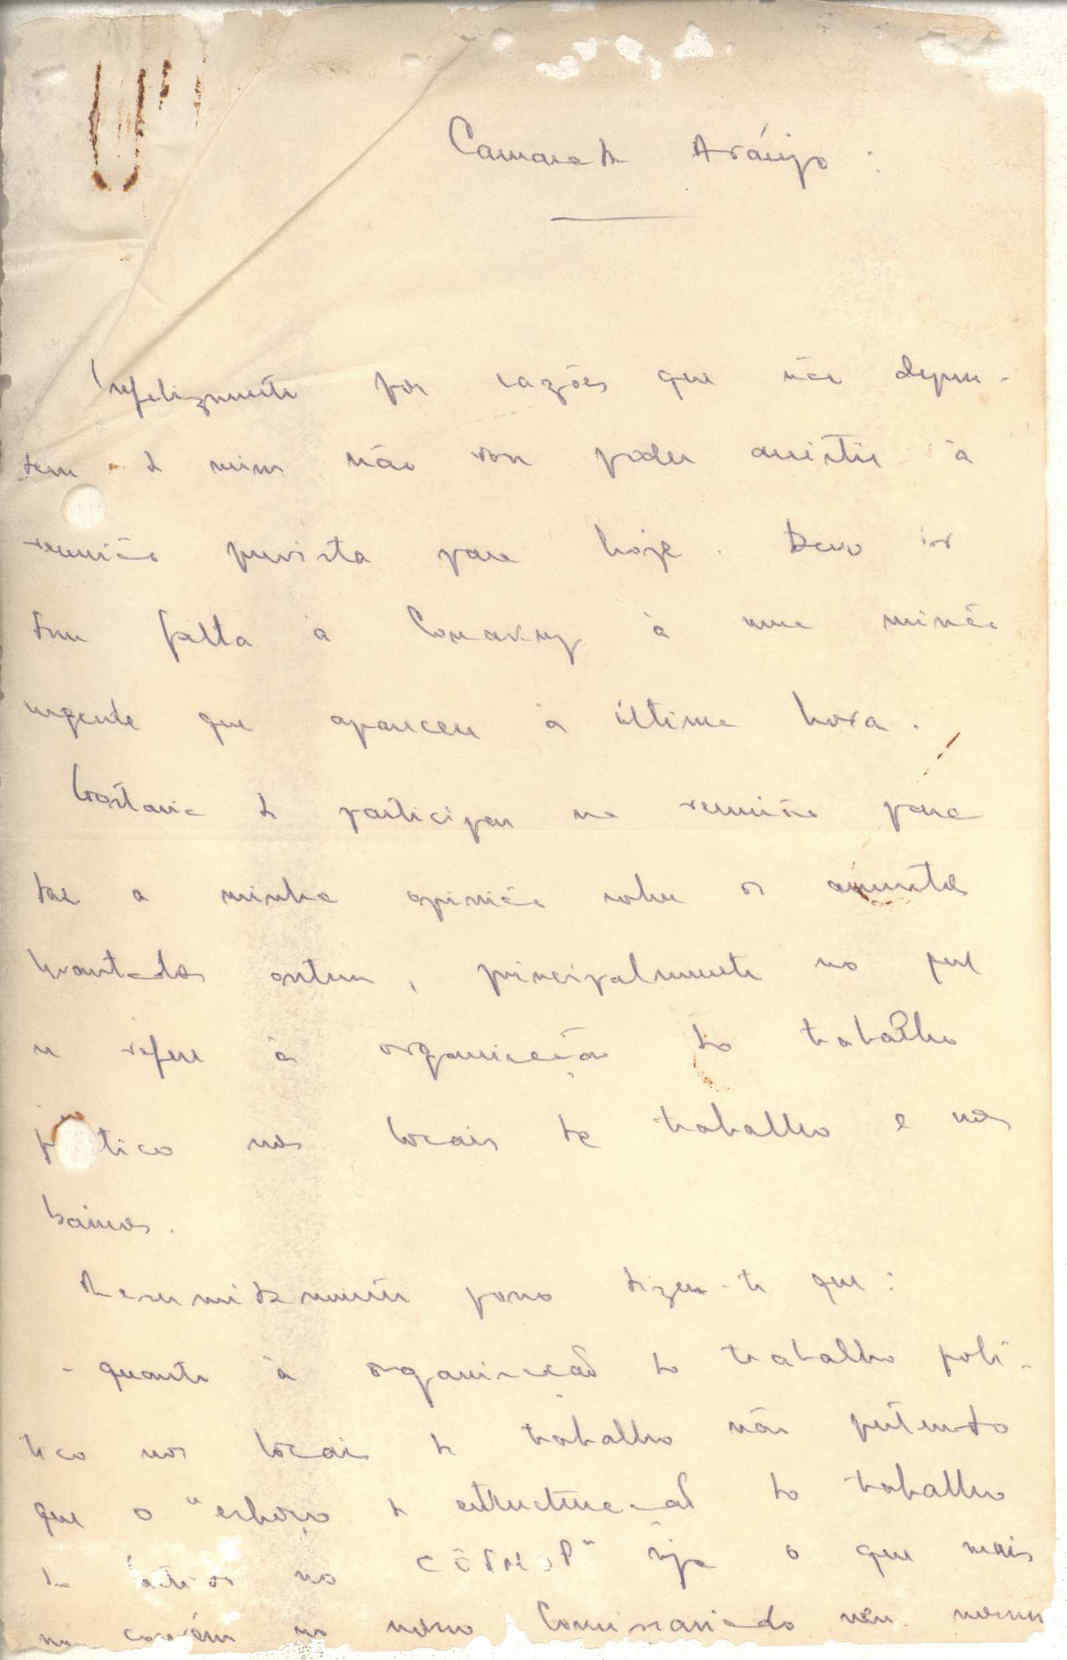 Camarada Araújo :
Infelizmente por razões que não depen-
dem de mim não vou poder assistir à
reunião prevista para hoje. Devo ir
sem falta a Conakry à uma missão
urgente que apareceu à última hora.
Gostaria de participar na reunião para
dar a minha opinião sobre os assuntos
levantados ontem, principalmente no que
se refere à organização do trabalho
p tico nos locais de trabalho e nos
bairros.
Resumidamente posso dizer-te que :
- quanto à organização do trabalho polí-
tico nos locais de trabalho não pretendo
que o "esboço de estruturação do trabalho
do no " seja o que mais
nos convém no nosso Comissariado nem mesmo